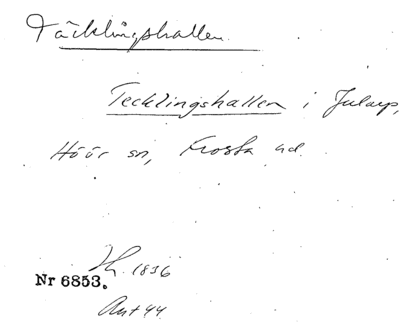 Täcklingshallen.
Tecklingshallen i Jularp,
Höör sn, Frosta hd.
Nr 6853.
1836
Ant 44